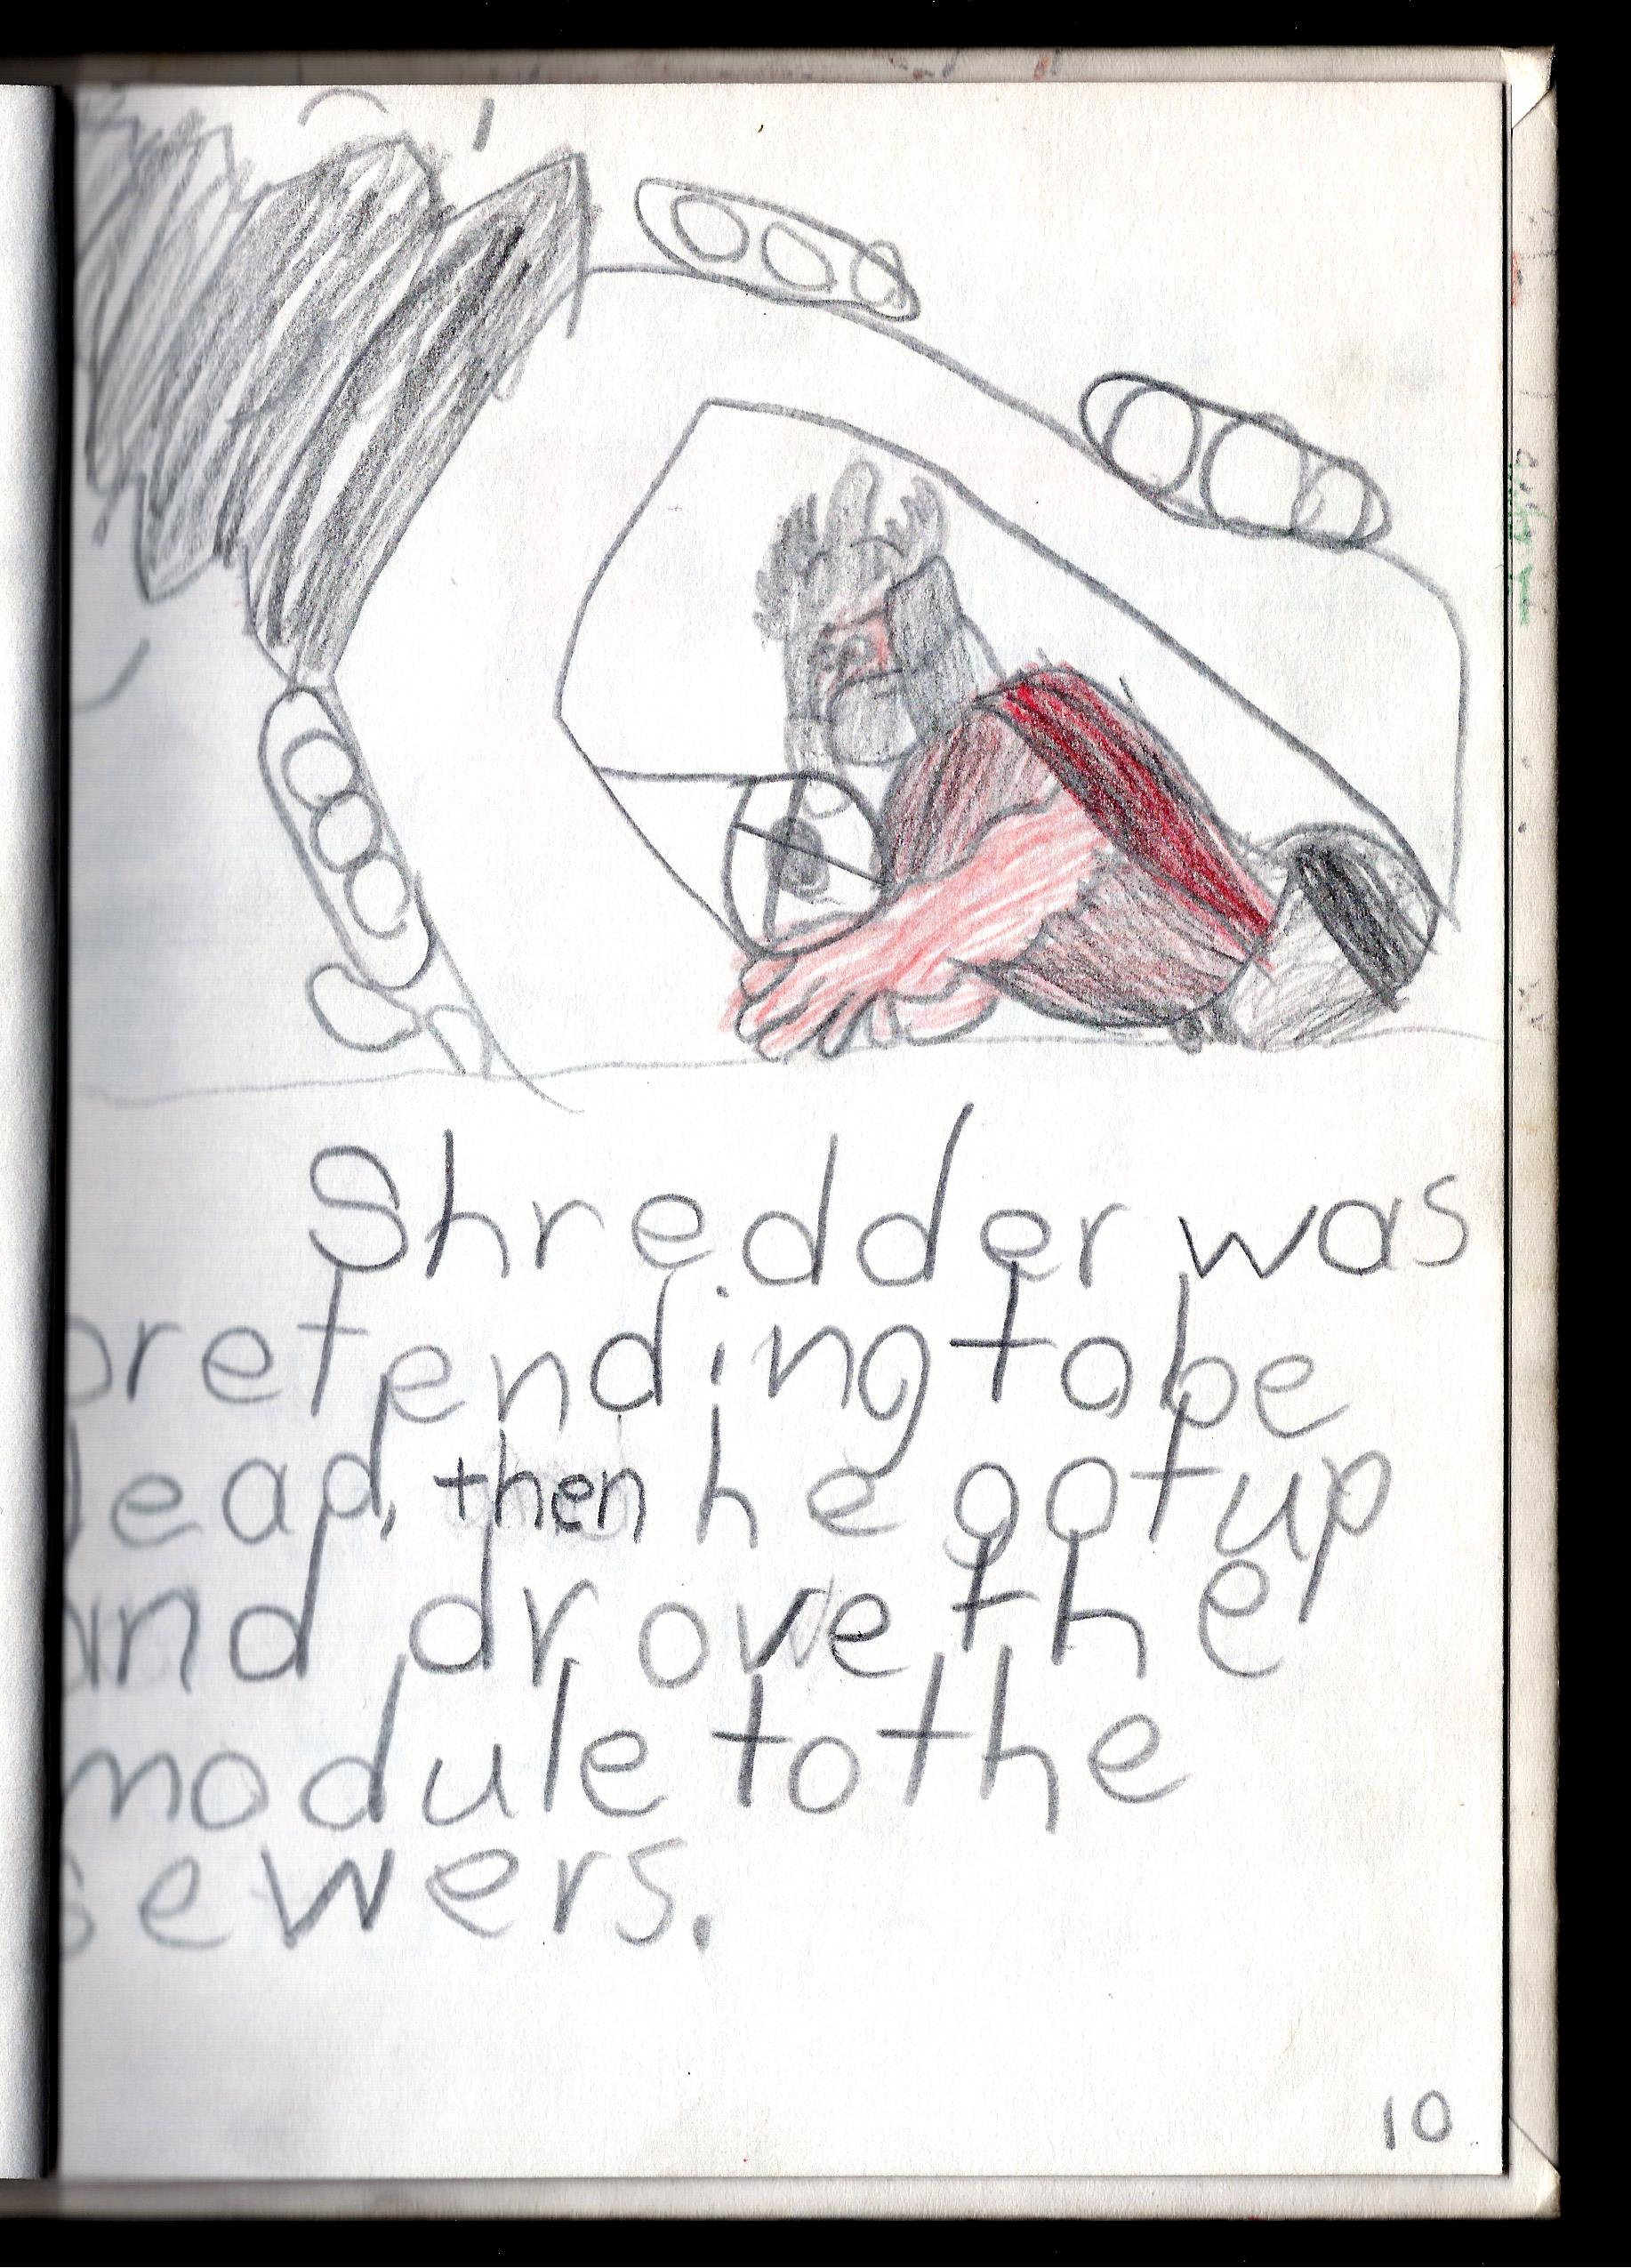 Shredder was
pretending to be
dead, then he got up
and drove the
module to the
sewers.
10